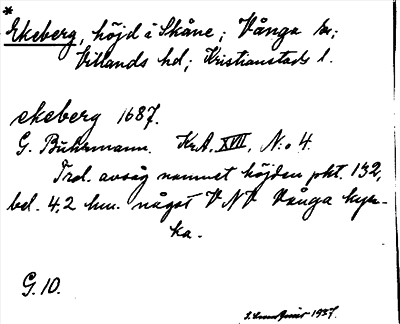 *
Ekeberg, höjd i Skåne; Vånga sn;
Villands hd; Kristianstads l.
ekeberg 1687.
G. Buhrmann. KrA. XVII, N:o 4.
Trol. avsåg namnet höjden pkt. 132,
bel. 4,2 km. något V NV Vånga kyr-
ka.
G. 10.
1937.